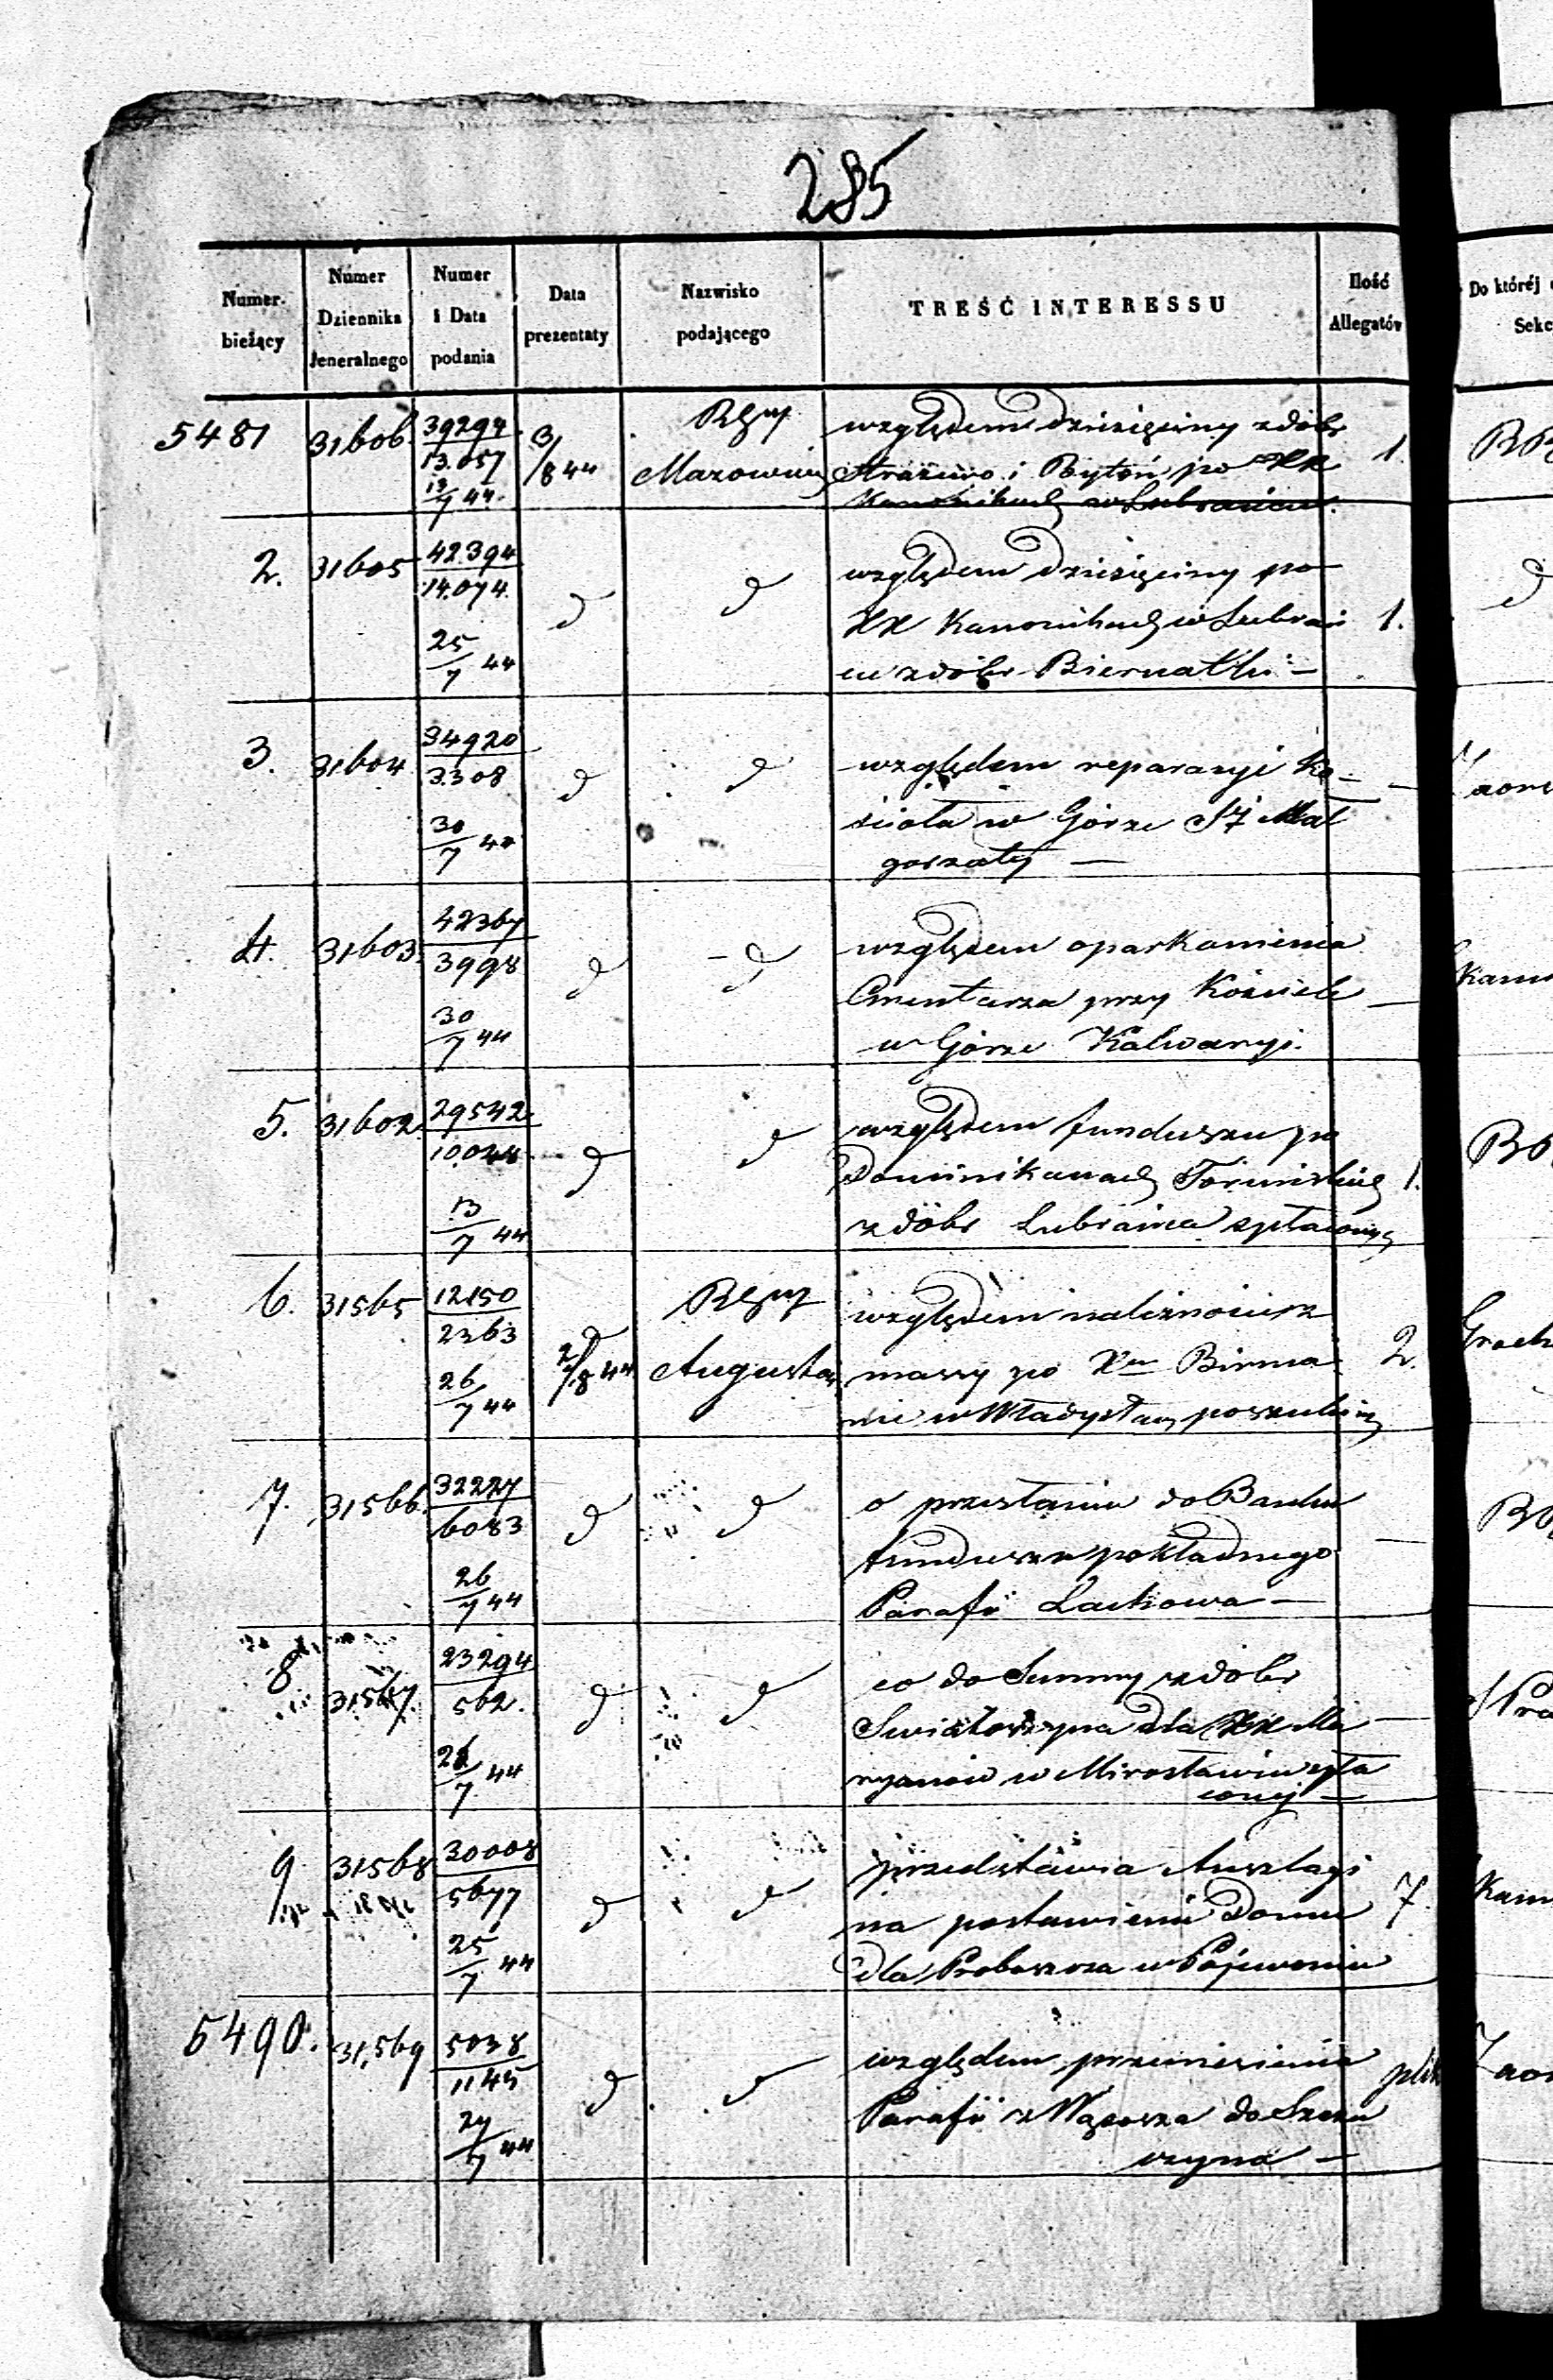 285
Numer bieżący
Numer Dziennika Jeneralnego
Numer i Data podania
Data prezentaty
Nazwisko podającego
TREŚĆ INTERESSU
Ilość Allegatów
Do któréj
Sekc
5481 31606 39294 3/8 44 względem dziesięciny z dóbr 1.
13.057 Mazowiec Straszewo i Bytoń po XX
13/7 44. Kanonikach w Lubrańcu.
2. 31605 42394 d d względem dziesięciny po d
14.074. XX Kanonikach w Lubrań 1.
25/7 44 cu z dóbr Biernatki –
3. 31604 34920 d d względem reparacyi Ko– –
3308 ścioła w Górze Sj Mał
30/7 44 gorzaty –
4. 31603 42367 d – d względem oparkanienia
3998 Cmentarza przy Kościele –
30/7 44 w Górze Kalwaryi.
5. 31602 29542 d d względem funduszu po
10.044 Dominikanach Toruńskich 1.
13/7 44 z dóbr Lubrańca spłaconych
6. 31565 12150 d względem należności z
2363 2/8 44 Augustow massy po Xu Birma 2.
26/7 44 nie w Władysław poszukiw
7. 31566 32227 d d o przesłaniu do Banku
6083 funduszu pokładnego –
26/7 44 Parafii Lachowa –
8 31567. 23294 d d co do Summy z dóbr
562. Swiatoszyna dla XX Ma –
26/7 44 ryanów w Mirosławiu spła
conej –
9 31568 30008 d d przedstawia Anszlagi
5677 na postawienie Domu 7.
25/7 44 dla Proboszcza w Pojewoniu
5490. 31,569 5038 d d względem przeniesienia plik
1145 Parafii z Wąsosza do Szczu
27/7 44 czyna –